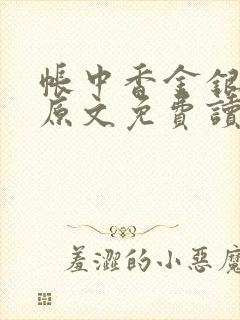 帳中香金銀
原文免費讀
羞澀的小惡魔